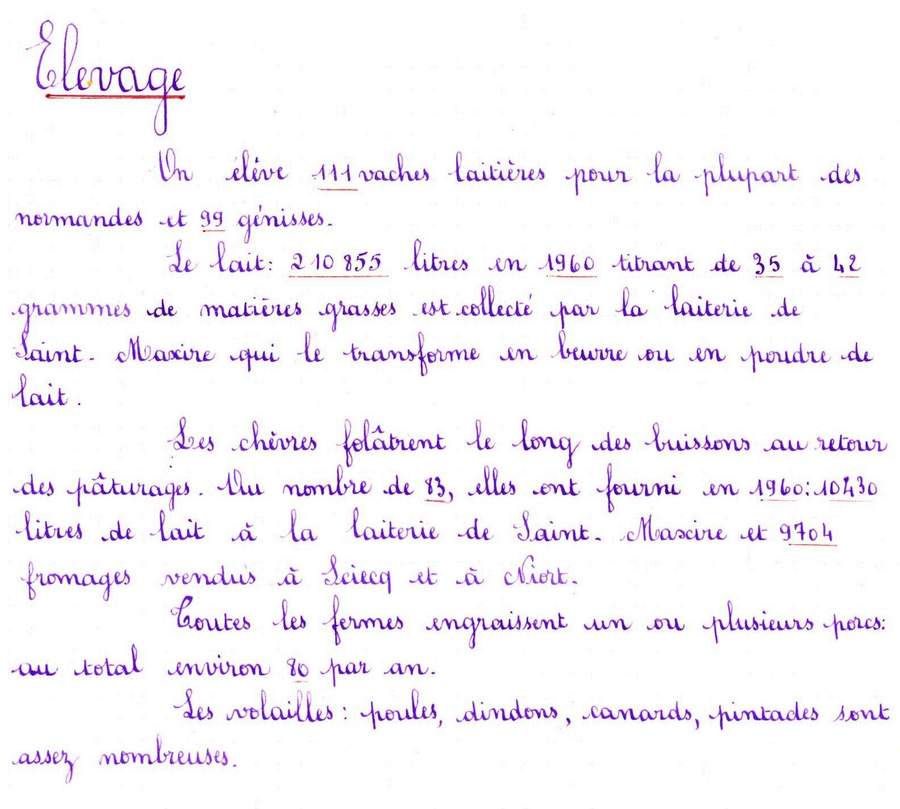 Elevage
On élève 111 vaches laitières pour la plupart des
normandes et 99 génisses.
Le lait: 210 855 litres en 1960 titrant de 35 à 42
grammes de matières grasses est collecté par la laiterie de
Saint-Maxire qui le transforme en beurre ou en poudre de
lait.
Les chèvres folâtrent le long des buissons au retour
des pâturages. Au nombre de 83, elles ont fourni en 1960: 10430
litres de lait à la laiterie de Saint-Maxire et 9704
fromages vendus à Sciecq et à Niort.
Toutes les fermes engraissent un ou plusieurs porcs:
au total environ 80 par an.
Les volailles: poules, dindons, canards, pintades sont
assez nombreuses.